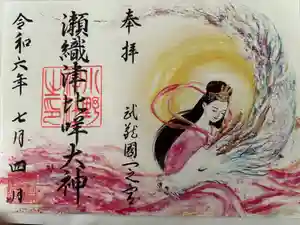 奉拝
武蔵國一之宮
瀬織津比咩大神
令和六年 七月 四日